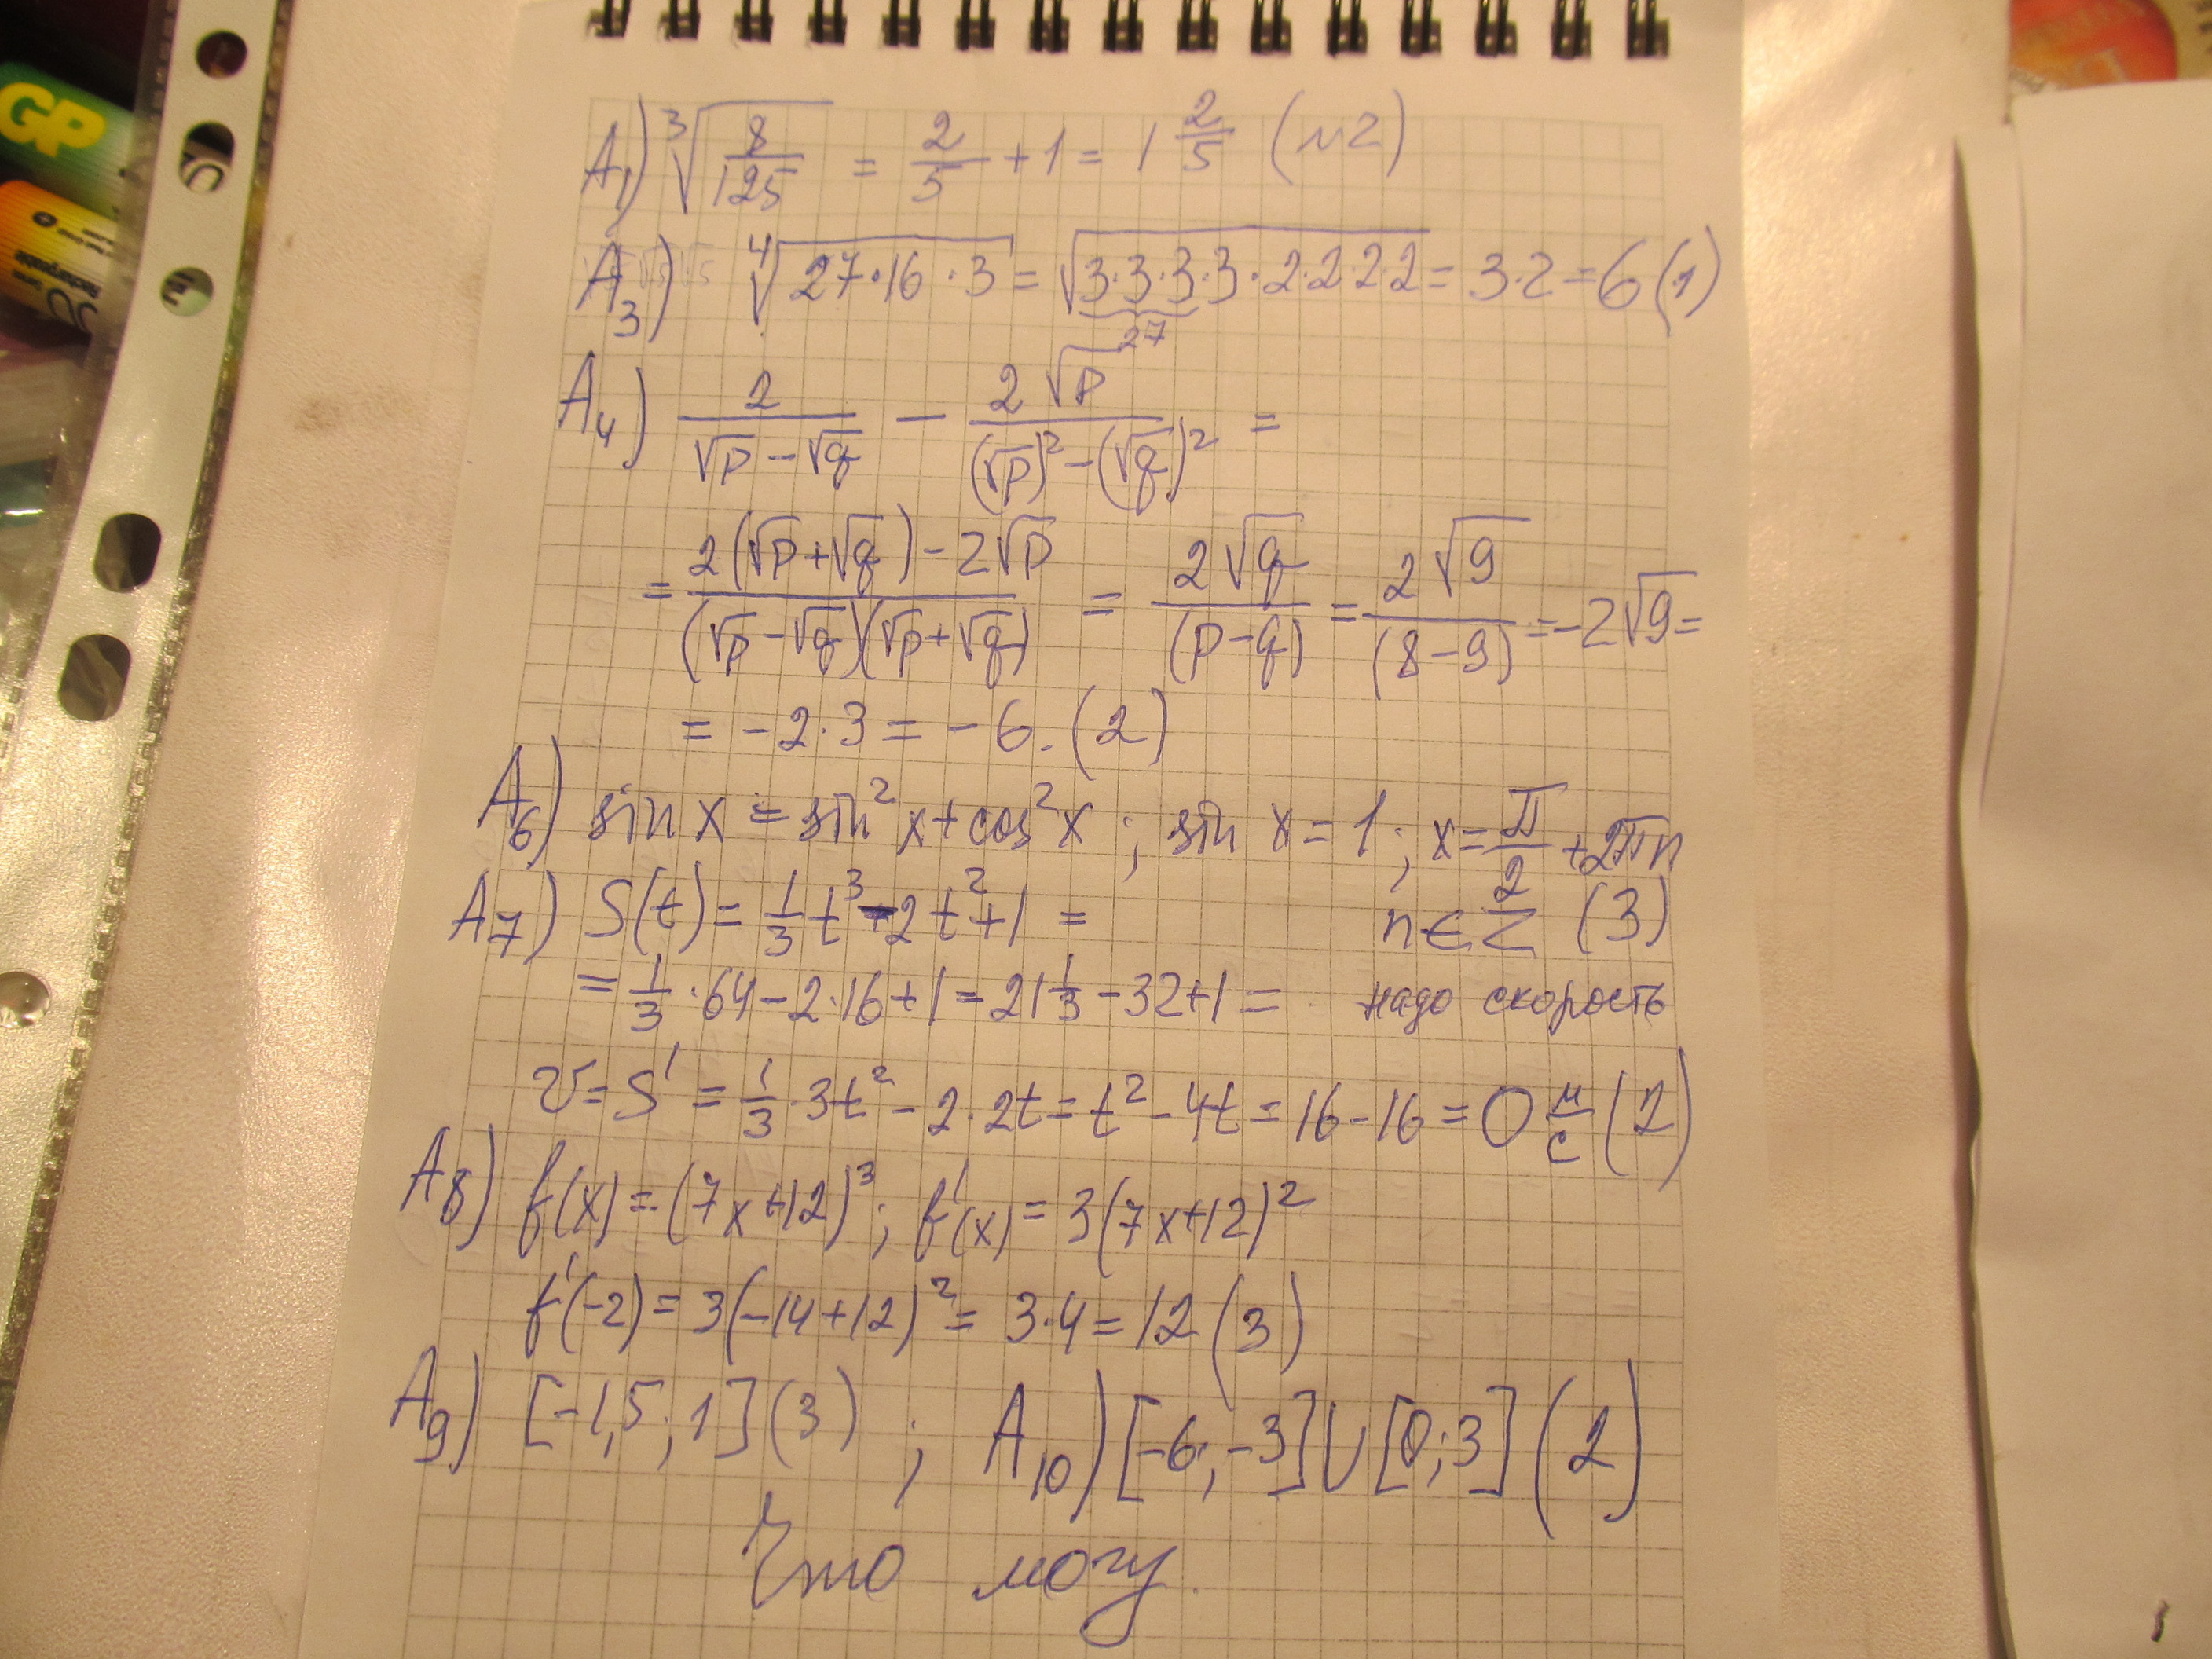 GP
Rechargeable
A₁) ∛(8/125) = 2/5 + 1 = 1 2/5 (№2)
A₃) ∜(27·16·3) = √(3·3·3·3·2·2·2·2) = 3·2 = 6 (1)
27
A₄) 2/(√p − √q) − 2√p/((√p)² − (√q)²) =
= (2(√p + √q) − 2√p)/((√p − √q)(√p + √q)) = 2√q/(p − q) = 2√9/(8 − 9) = −2√9 =
= −2·3 = −6. (2)
A₆) sin x = sin²x + cos²x ; sin x = 1 ; x = π/2 + 2πn
n ∈ Z (3)
A₇) S(t) = 1/3 t³ − 2t² + 1 =
= 1/3 · 64 − 2·16 + 1 = 21 1/3 − 32 + 1 = надо скорость
v = S' = 1/3 · 3t² − 2·2t = t² − 4t = 16 − 16 = 0 м/с (2)
A₈) f(x) = (7x+12)³ ; f'(x) = 3(7x+12)²
f'(−2) = 3(−14+12)² = 3·4 = 12 (3)
A₉) [−1,5 ; 1] (3) ; A₁₀) [−6; −3] ∪ [0; 3] (2)
Что могу.